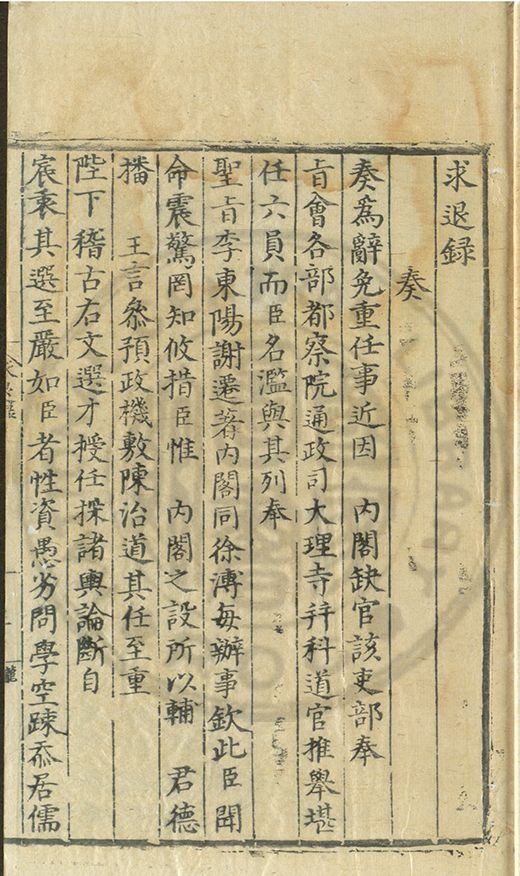 求退録
奏
奏爲辭免重任事近因　內閣缺官該吏部奉
旨會各部都察院通政司大理寺幷科道官推舉堪
任六員而臣名濫與其列奉
聖旨李東陽謝遷著內閣同徐溥每辦事欽此臣聞
命震驚罔知攸措臣惟　內閣之設所以輔　君德
播　王言叅預政機敷陳治道其任至重
陛下稽古右文選才授任採諸輿論斷自
宸衷其選至嚴如臣者性資愚劣問學空踈忝居儒